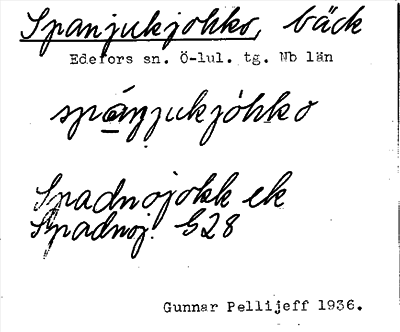 Spanjukjohko, bäck
Edefors sn. Ö-lul. tg. Nb län
spáŋjukjóhko
Spadnojokk ek
Spadnoj. G28
Gunnar Pellijeff 1936.